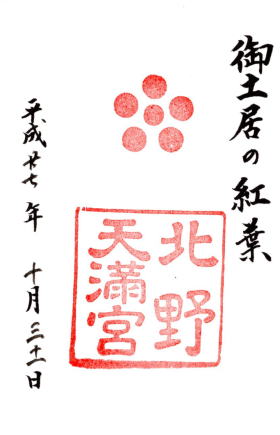 御土居の紅葉
北野
天満宮
平成廿七年 十月三十一日